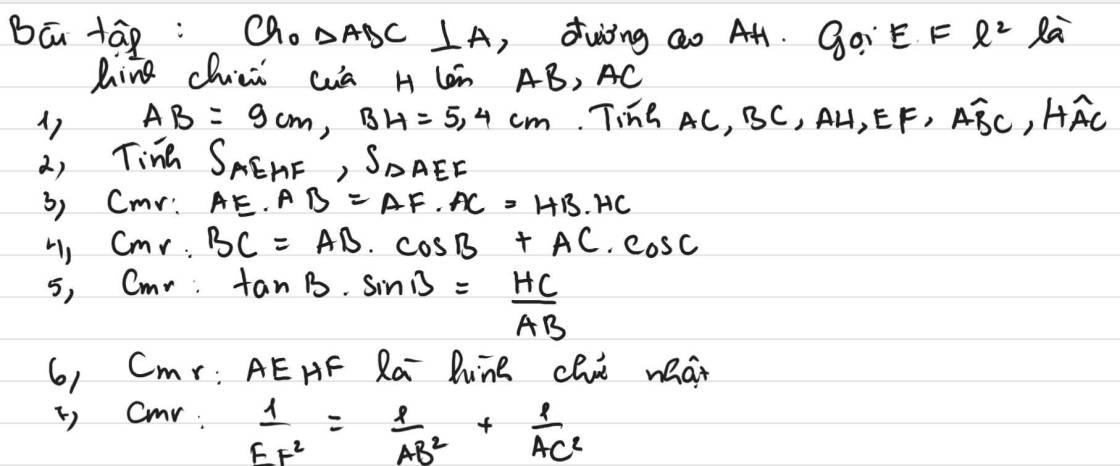 Bài tập : Cho ΔABC ⊥A, đường cao AH. Gọi E F l² là
hình chiếu của H lên AB, AC
1, AB = 9cm, BH = 5,4 cm. Tính AC, BC, AH, EF, AB̂C, HÂC
2, Tính S_AEHF, S_ΔAEF
3, Cmr: AE.AB = AF.AC = HB.HC
4, Cmr: BC = AB. cosB + AC. cosC
5, Cmr: tanB. sinB = HC/AB
6, Cmr: AEHF là hình chữ nhật
7, Cmr: 1/EF² = 1/AB² + 1/AC²